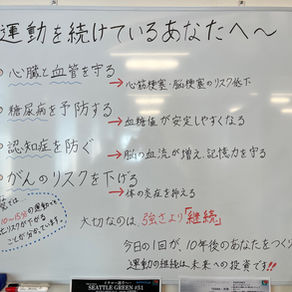 運動を続けているあなたへ〜
心臓と血管を守る
→心筋梗塞・脳梗塞のリスク低下
糖尿病を予防する
→血糖値が安定しやすくなる
認知症を防ぐ
→脳の血流が増え、記憶力を守る
がんのリスクを下げる
→体の炎症を抑える
では
10〜15分の運動でも
リスクが下がる
ことが分かっています。
大切なのは強さより「継続」
今日の1回が、10年後のあなたをつくり
運動の継続は未来への投資です!!
SEATTLE GREEN #51